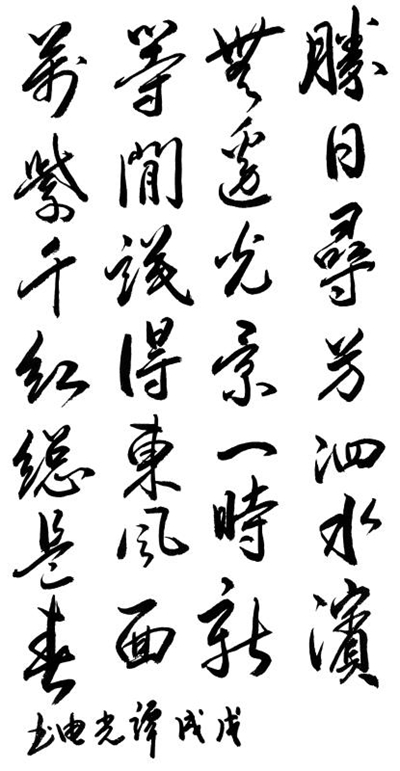 勝日尋芳泗水濱
無邊光景一時新
等閒識得東風面
萬紫千紅總是春
戊戌譚光书